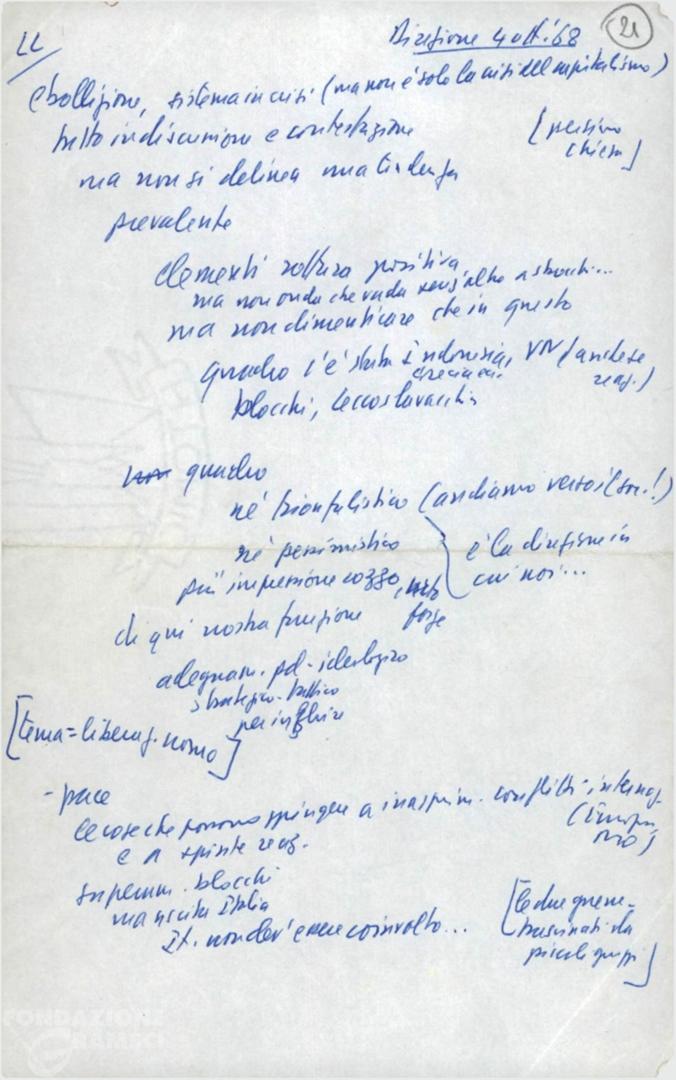 LL
Direzione 4 ott. '68
21
ebollizione, sistema in crisi (ma non è solo la crisi del capitalismo)
tutto in discussione e contestazione
[persino
chiesa]
ma non si delinea una tendenza
prevalente
elementi rottura positiva
ma non onda che vada senz'altro a sbocchi...
ma non dimenticare che in questo
quadro c'è stata Indonesia, VN (anche se
reaz.)
Grecia ecc.
blocchi, Cecoslovacchia
quadro
né trionfalistico (andiamo verso il soc.!)
né pessimistico
è la direzione in
cui noi...
più impressione cozzo, urto
forze
di qui nostra funzione
adeguam. pol-ideologico
strategico-tattico
per influire
[tema = liberaz. uomo]
- pace
le cose che possono spingere a inasprim. conflitti internaz.
(Europa
MO)
e a spinte reaz.
superam. blocchi
ma uscita Italia
It. non dev'essere coinvolta...
[le due guerre -
trascinati da
piccoli gruppi]
FONDAZIONE
GRAMSCI